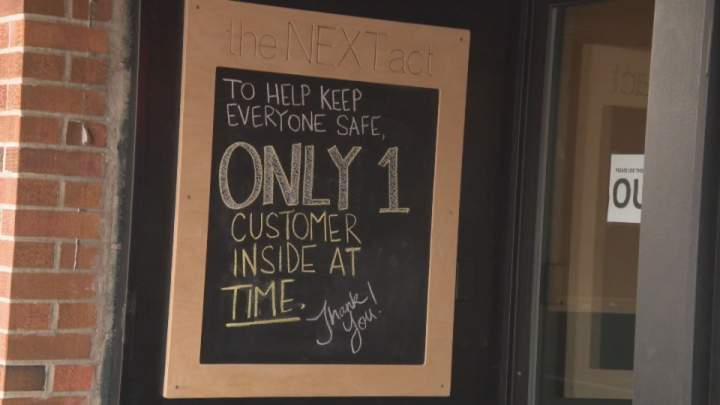 the NEXT act
TO HELP KEEP
EVERYONE SAFE,
ONLY 1
CUSTOMER
INSIDE AT
TIME.
Thank
You!
OU